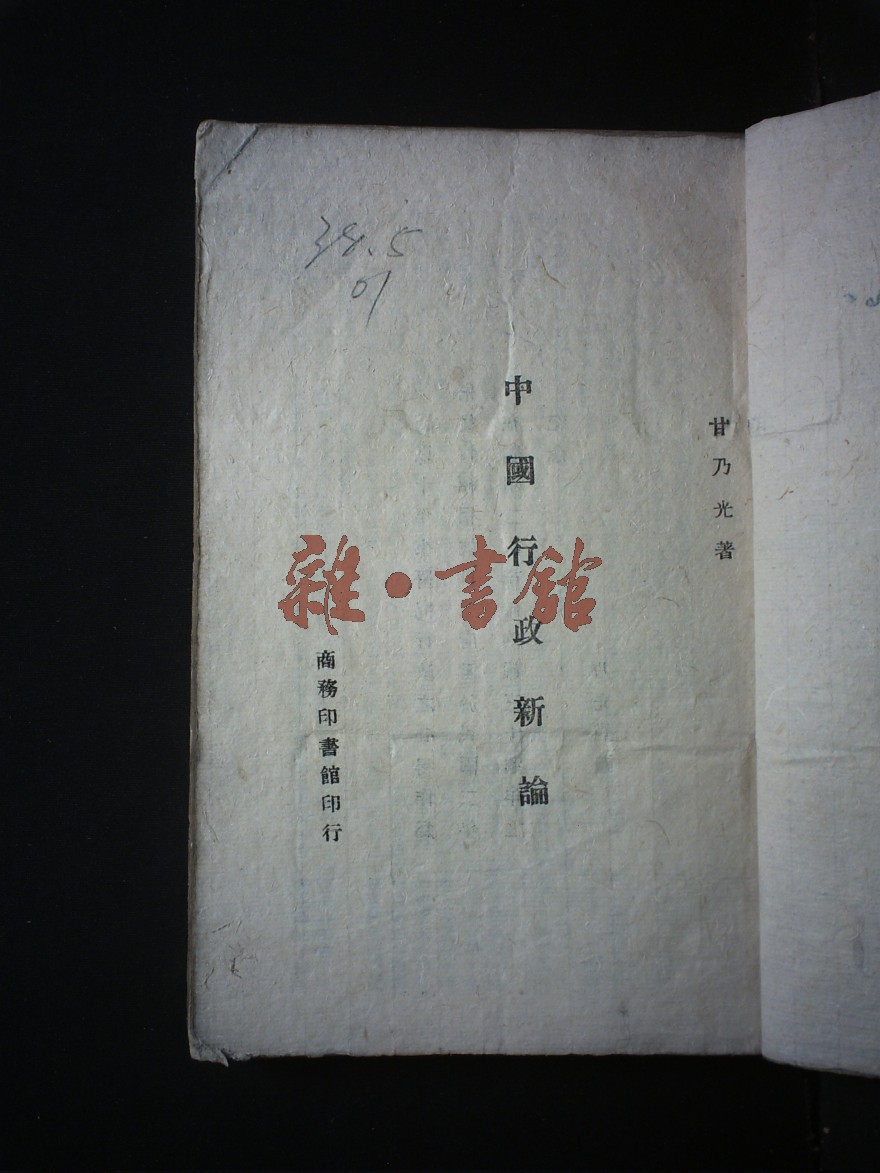 甘乃光著
中國行政新論
商務印書館印行
38.5
01
雜·書館